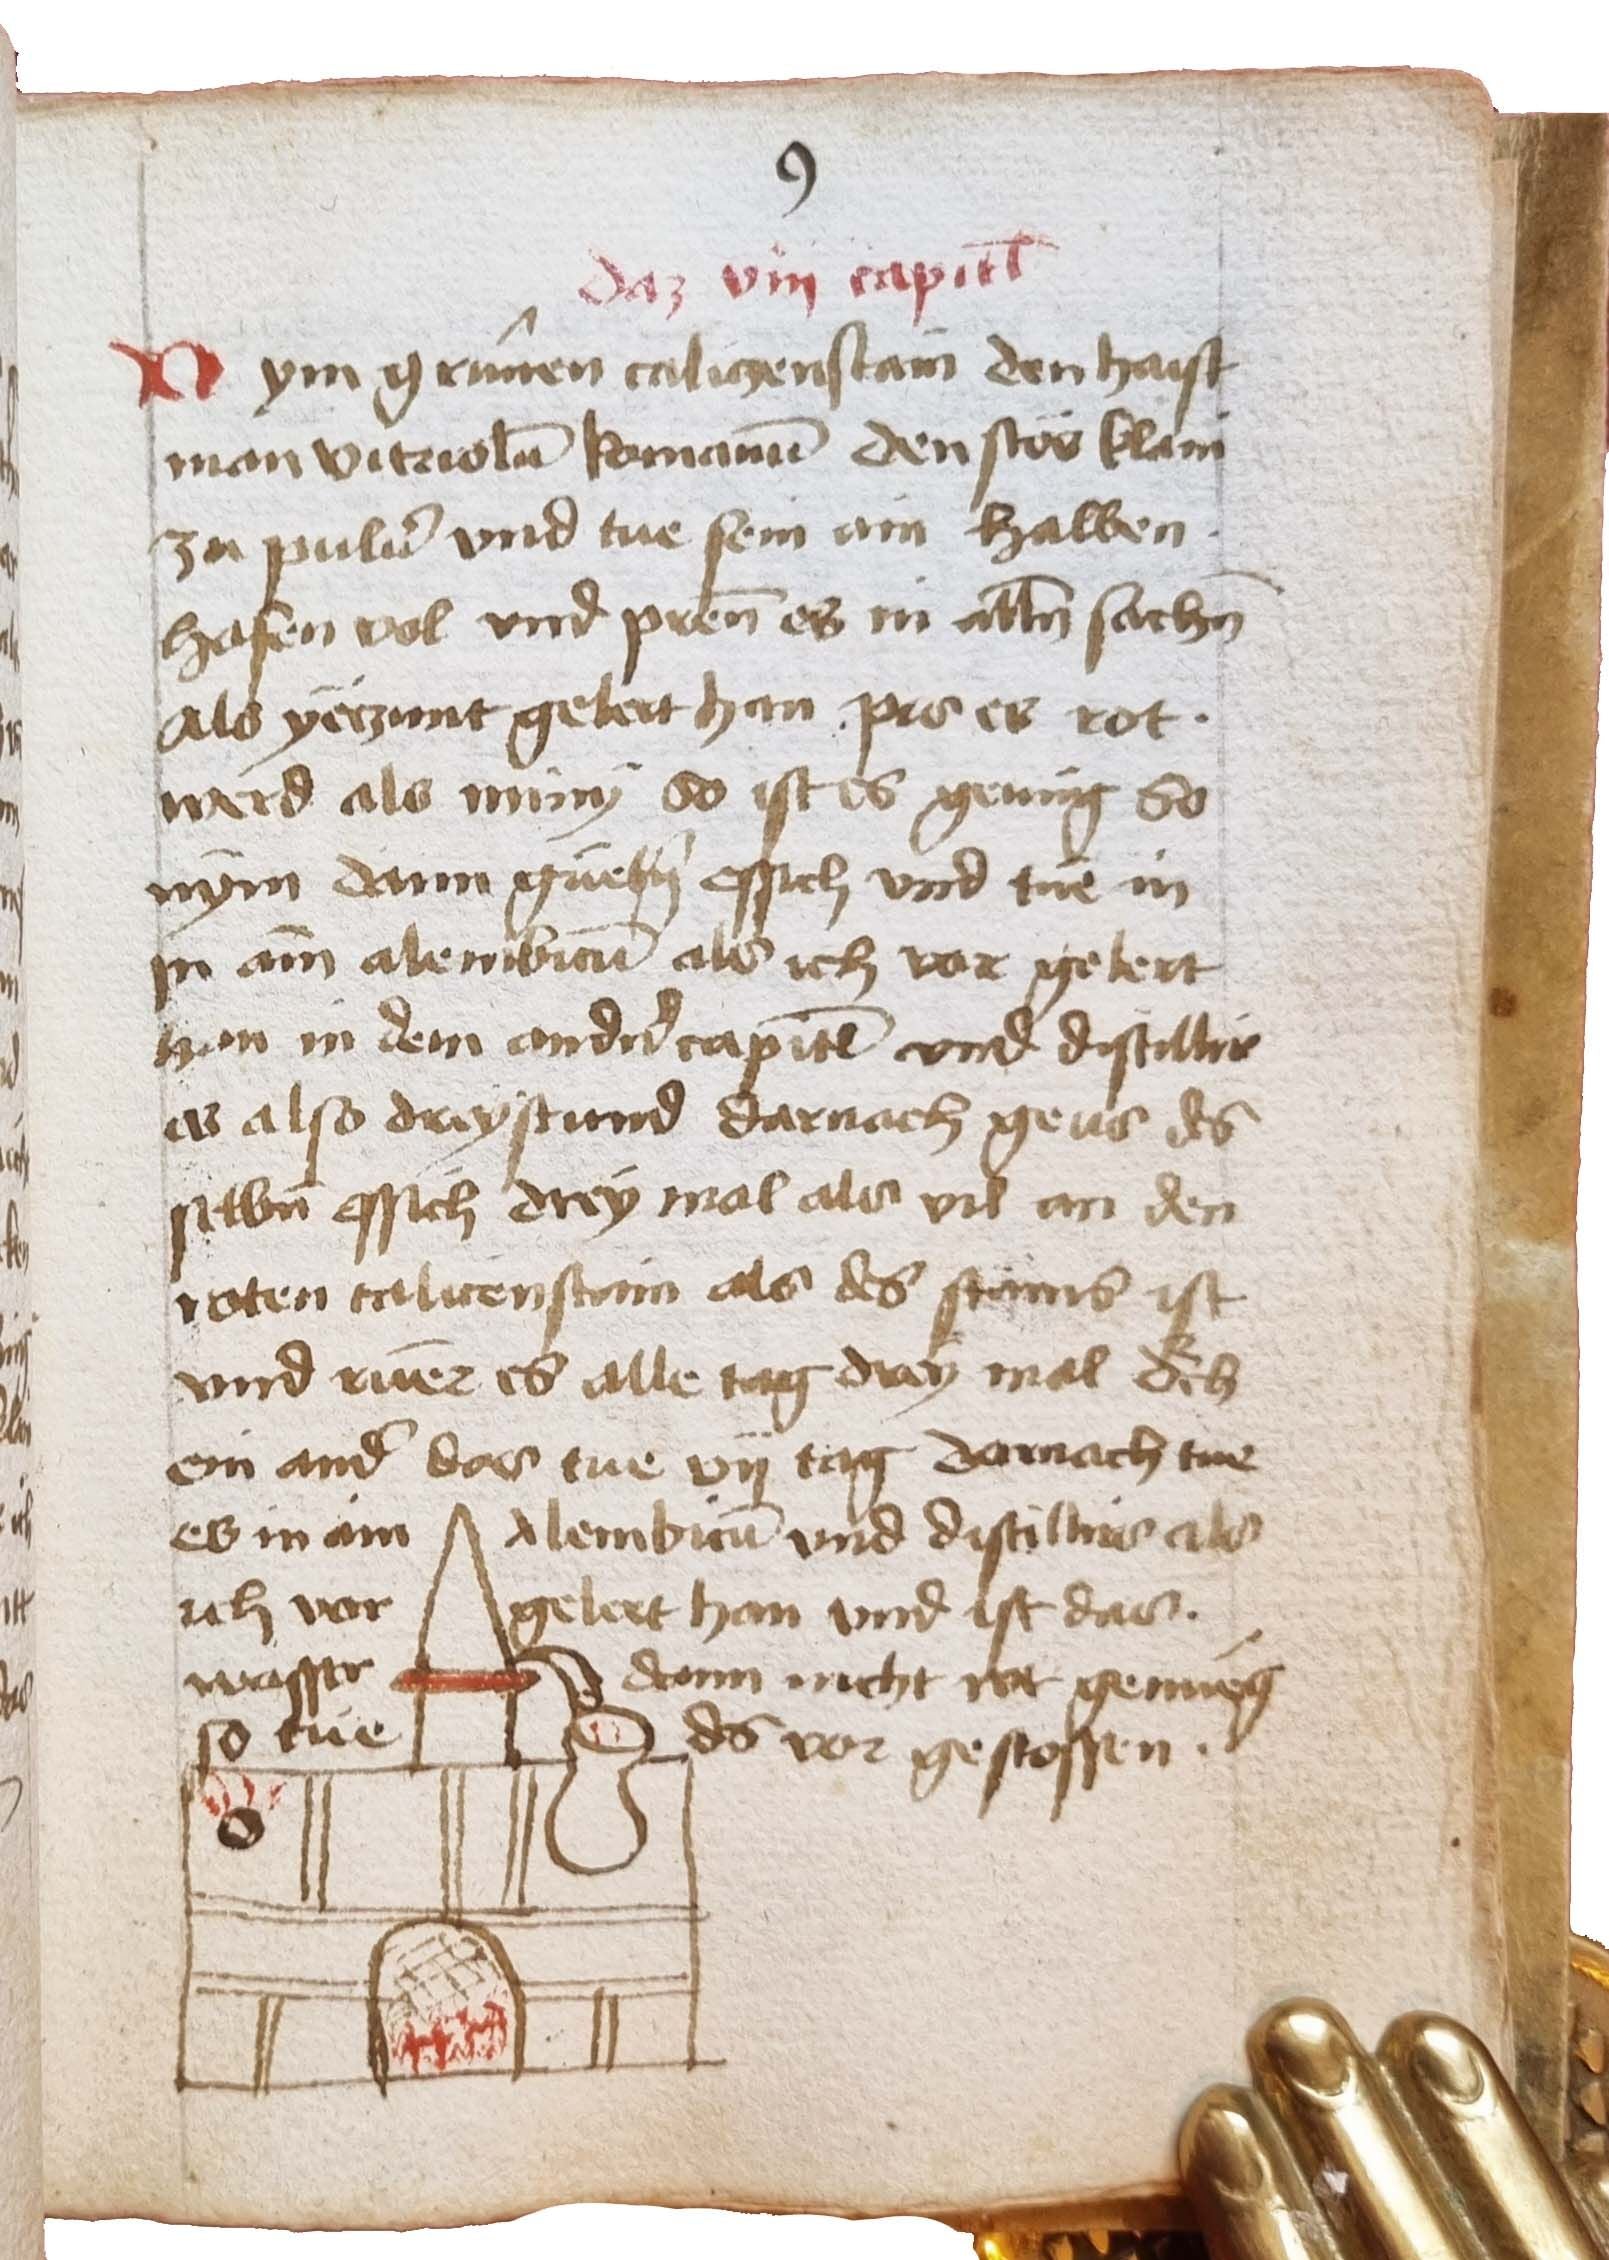 9
daz viij capitl
Nym grünen caliczenstain den haist
man vitriolū Romanū den stos klain
zu pulu̓ vnd tue sein ain halben
hafen vol vnd pren̄ es in alln̄ sachn̄
als yëczunt gelert han pis es rot.
werd als miny So ist es genüg So
nym dann güetn̄ essich vnd tüe in
in ain̄ alembicū als ich vor gelert
han in dem andn̓ capitl vnd distillir
es also dreystund darnach geus des
selbn̄ essich drey mal als vil an den
roten calicenstain als des stains ist
vnd rüer es alle tag drey mal dch
ein and̓ das tue vij tag darnach tue
es in aim Alembicū vnd distillirs als
ich vor gelert han vnd ist das.
wasser dann nicht rot genüeg
so tüe ds vor gestossen.